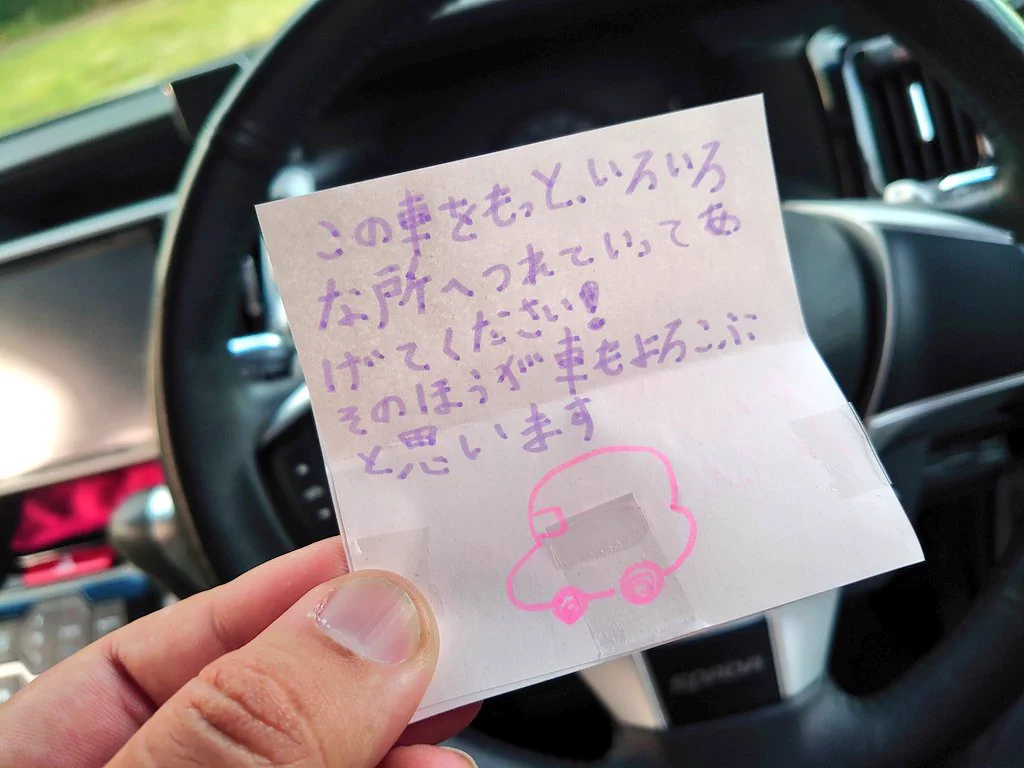 この車をもっと、いろいろ
な所へつれていってあ
げてください!
そのほうが車もよろこぶ
と思います
SPADA